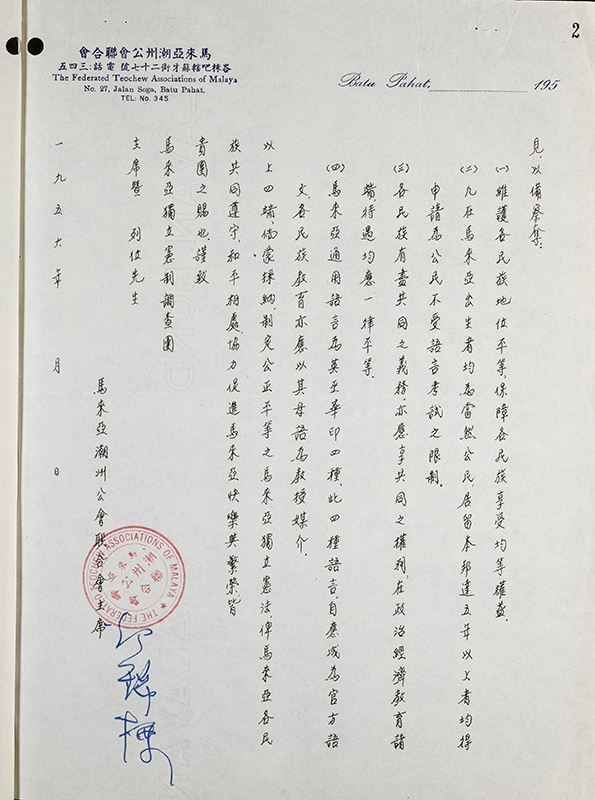 2
馬來亞潮州公會聯合會
峇株吧轄蘇牙街二十七號 電話:三四五
The Federated Teochew Associations of Malaya
No. 27, Jalan Soga, Batu Pahat.
TEL: No. 345
Batu Pahat, 195
見,以備察奪:
(一)維護各民族地位平等,保障各民族享受均等權益.
(二)凡在馬來亞出生者均為當然公民,居留本邦達五年以上者均得
申請為公民不受語言考試之限制.
(三)各民族有盡共同之義務,亦應享共同之權利,在政治經濟教育諸
端,待遇均應一律平等.
(四)馬來亞通用語言為英巫華印四種,此四種語言,自應成為官方語
文,各民族教育亦應以其母語為教授媒介.
以上四端,倘蒙採納,制定公正平等之馬來亞獨立憲法,俾馬來亞各民
族共同遵守,和平相處,協力促進馬來亞快樂與繁榮,皆
貴團之賜也,謹致
馬來亞獨立憲制調查團
主席暨 列位先生
馬來亞潮州公會聯合會主席
THE FEDERATED TEOCHEW ASSOCIATIONS OF MALAYA
馬來亞
潮州公會
聯合會
一九五六年 月 日